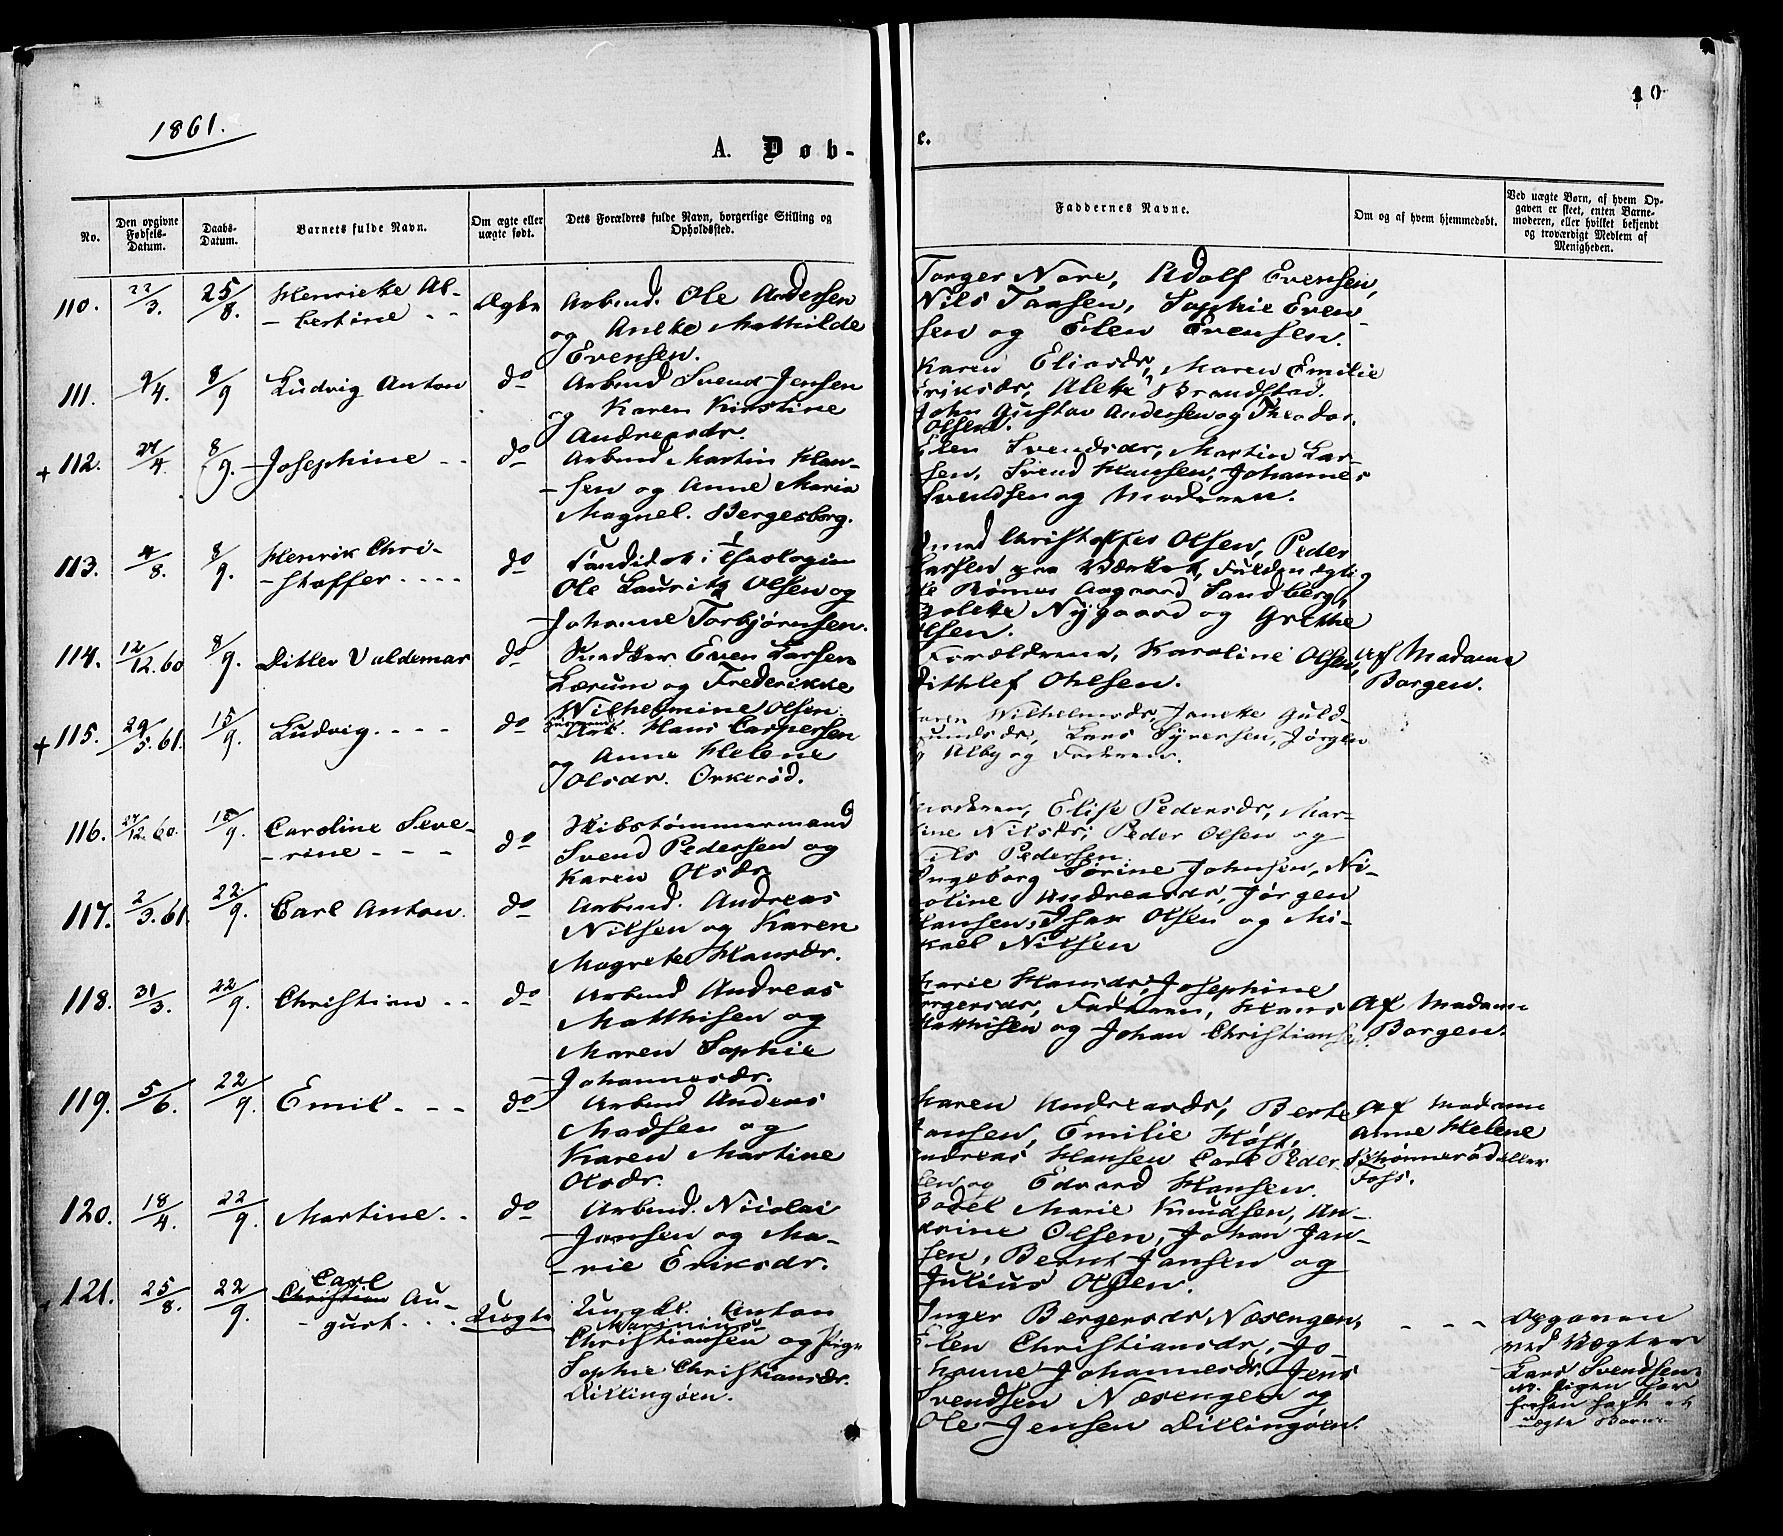 1861.
10
A. Døb-
e.
No.
Den opgivne Fødsels-Datum.
Daabs-Datum.
Barnets fulde Navn.
Om ægte eller uægte født.
Dets Forældres fulde Navn, borgerlige Stilling og Opholdssted.
Faddernes Navne.
Om og af hvem hjemmedøbt.
Ved uægte Børn, af hvem Opgaven er skeet, enten Barnemoderen, eller hvilket bekjendt og troværdigt Medlem af Menigheden.
110.
22/3.
25/8.
Henriette Al-
- bertine - -
Ægte
Arbmd. Ole Andersen
og Anette Mathilde
Evensen.
Torger Nore, Adolf Evensen,
Nils Tansen, Sophie Even-
sen og Elen Evensen.
111.
9/4.
8/9
Ludvig Anton
do
Arbmd Svend Jensen
og Karen Kirstine
Andreasdr.
Karen Eliasdr, Maren Emilie
Eriksdr, Alette Brandstad.
John Gustav Andersen og Theodor
Olsen.
+ 112.
27/4.
8/9.
Josephine - -
do
Arbmd Martin Han-
- sen og Anne Maria
Magnel. Bergersborg.
Elen Svendsdr, Martin Lar-
sen, Svend Hansen, Johannes
Svendsen og Moderen.
113.
4/8.
8/9.
Henrik Chri-
- stoffer - - - -
do
Candidat i Theologien
Ole Lauritz Olsen og
Johanne Torbjørnsen.
Christoffer Olsen, Peder
Larsen paa Værket, Fuldmægtig
Rømer Aagaard Sandberg,
Bolette Nygaard og Grethe
Olsen.
114.
12/12.60
8/9.
Ditlev Valdemar
do
Snedker Even Larsen
Lærum og Frederikke
Wilhelmine Olsen.
Forældrene, Karoline Olsen,
Dithlef Ohlsen.
Af Madame
Borgen.
+ 115.
29/5.61.
15/9.
Ludvig - - - -
do
Hans Caspersen
og Anne Helene
Olsdr. Orkerød.
Karen Wilhelmsdr, Janette Guld-
mundsdr, Lars Syversen, Jørgen
Alby og Faderen.
116.
27/12.60.
15/9.
Caroline Seve-
- rine - - -
do
Skibstømmermand
Svend Pedersen og
Karen Olsdr
Moderen, Elise Pedersdr, Mar-
tine Nilsdr, Peder Olsen og
Nils Pedersen.
117.
2/3.61.
22/9.
Carl Anton.
do
Arbmd. Andreas
Nilsen og Karen
Magrete Hansdr.
Ingeborg Sørine Johnsen, Ni-
coline Andreasdr, Jørgen
Hansen, Isak Olsen og Mi-
kael Nilsen
118.
31/3.
22/9.
Christian - -
do
Arbmd Andreas
Matthisen og
Maren Sophie
- Johannesdr.
Marie Hansdr, Josephine
Torgersdr, Faderen, Hans
Matthisen og Johan Christians
Af Madame
Borgen.
119.
5/6.
22/9.
Emil - - -
do
Arbmd Andreas
Madsen og
Karen Martine
Olsdr.
Karen Andreasdr, Berte
Jansen, Emilie Høst,
Andreas Hansen Carl Peder-
sen og Edvard Hansen.
Af Madame
Anne Helene
Skønnerød eller
Foss.
120.
18/4.
22/9.
Martine - -
do
Arbmd. Nicolai
- Jansen og Ma-
- rie Eriksdr.
Bodel Marie Knudsen, An-
drine Olsen, Johan Jan-
sen, Bernt Jansen og
Julius Olsen.
121.
25/8.
22/9.
Carl
Christian Au-
- gust - - -
Uægte
Ungkl. Anton
Marinius
Christiansen og Pige
Sophie Christiansdr.
Dillingøen.
Inger Bergersdr Næsengen,
Elen Christiansdr, Jo-
hanne Johannesdr, Jens
Svendsen Næsengen og
Ole Jensen Dillingøen.
- - -
Opgaven
ved Vægter
Lars Svendsen.
NB. Pigen har
før havt et
uægte Barn.